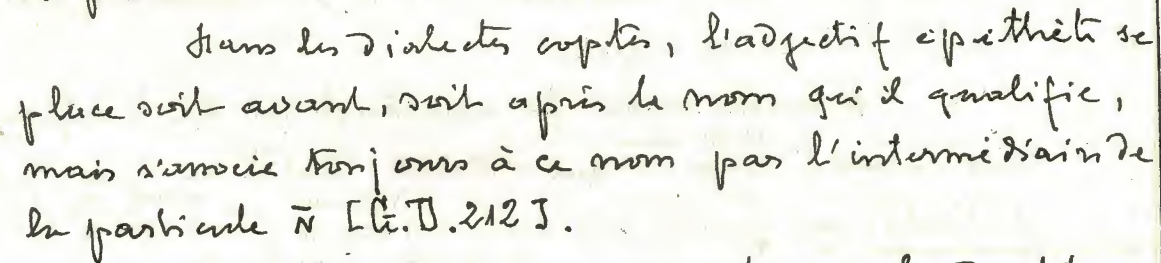 Dans les dialectes coptes, l'adjectif épithète se
place soit avant, soit après le nom qu'il qualifie,
mais s'associe toujours à ce nom par l'intermédiaire de
la particule N̄ [G.D.212].